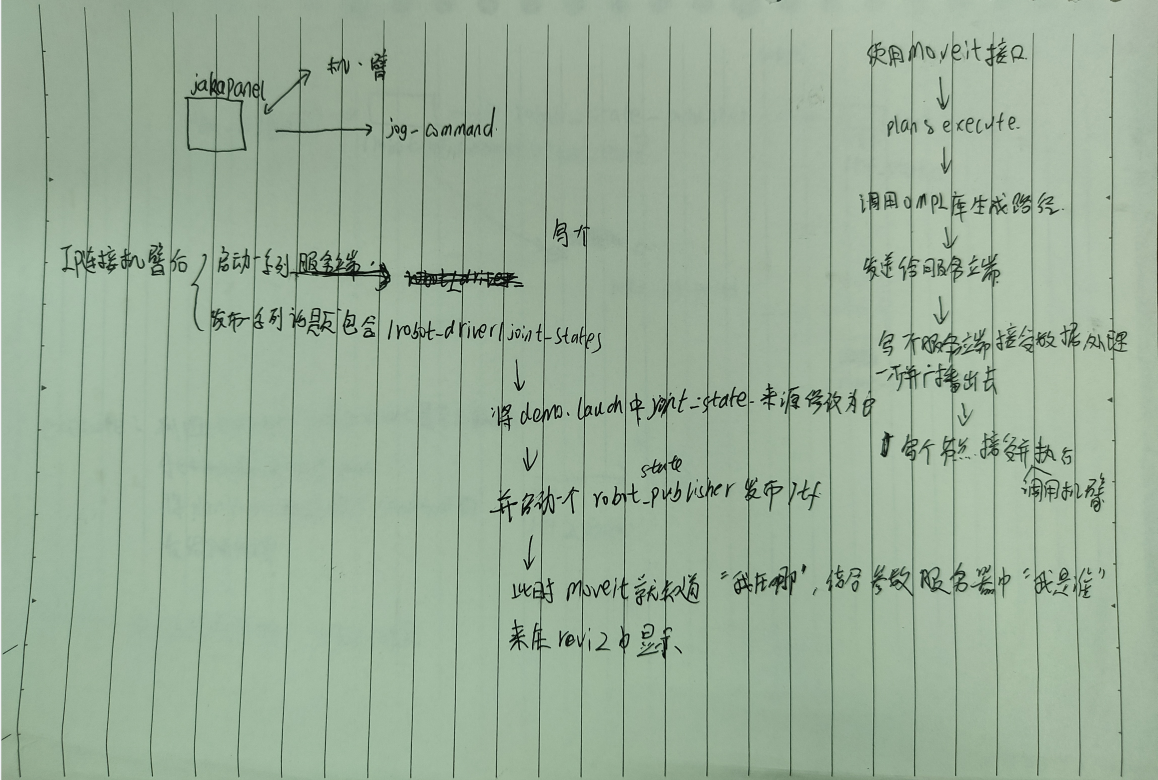 jakapanel
机·臂
jog-command
IP连接机臂后
启动一系列服务端.
发布一系列话题包含/robot_driver/joint_states
写个
将demo.lauch中joint_state来源修改为它
state
并启动一个 robot_publisher 发布/tf
此时moveit就知道“我在哪”,结合参数服务器中“我是谁”
来在reviz中显示
使用moveit接口
plans execute.
调用OMPL库生成路径.
发送给服务端
写个服务端接受数据处理
一下并广播出去
写个节点接受并执行
调用机臂